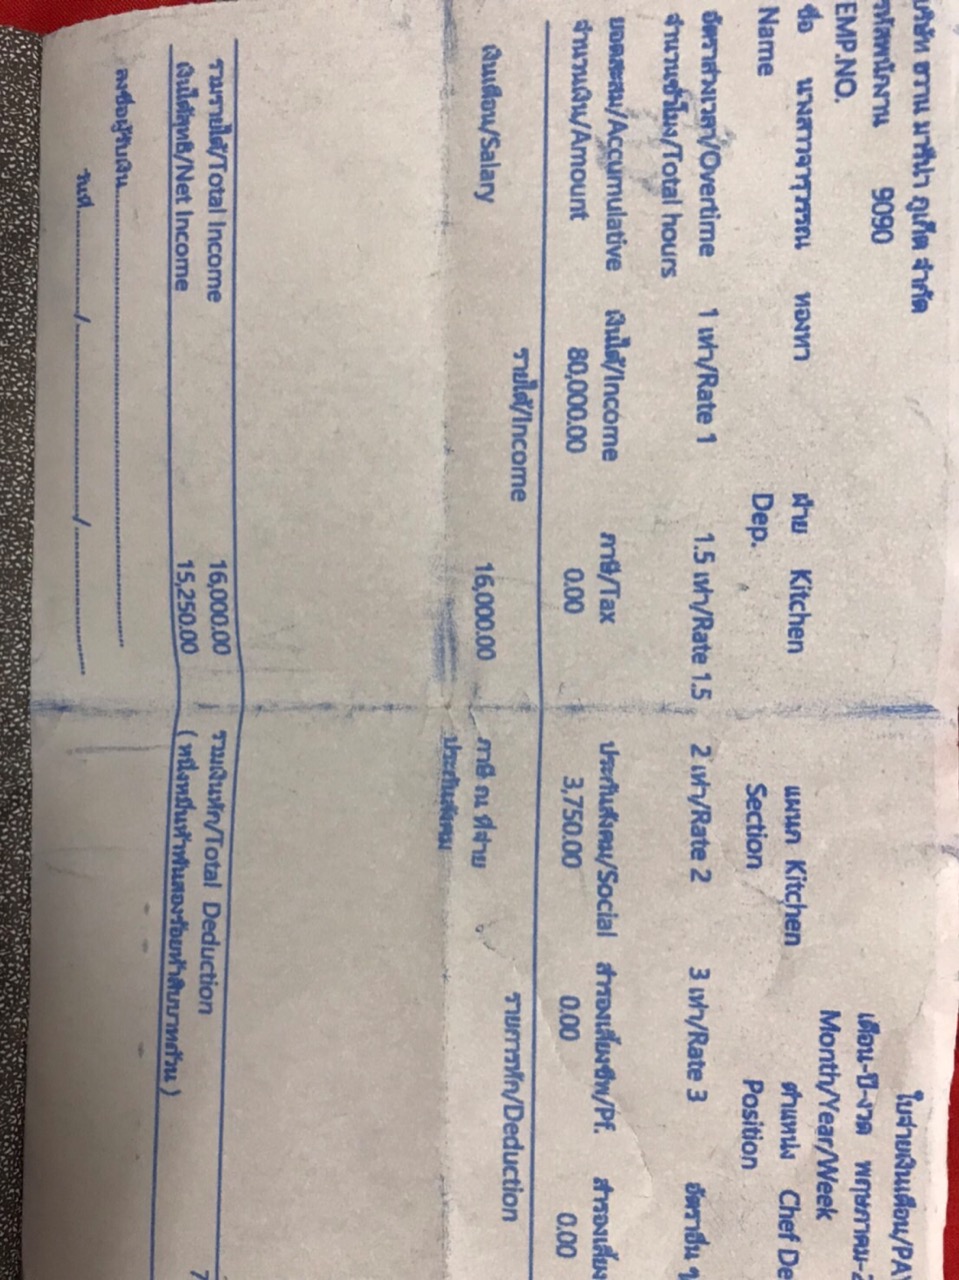 บริษัท ฮาวาน มารีน่า ภูเก็ต จำกัด ใบจ่ายเงินเดือน/PAY
รหัสพนักงาน 9090 เดือน-ปี-งวด พฤษภาคม-2
EMP.NO. Month/Year/Week
ชื่อ นางสาวจารุวรรณ ทองทา ฝ่าย Kitchen แผนก Kitchen ตำแหน่ง Chef De
Name Dep. Section Position
อัตราล่วงเวลา/Overtime 1 เท่า/Rate 1 1.5 เท่า/Rate 1.5 2 เท่า/Rate 2 3 เท่า/Rate 3 อัตราอื่น ๆ
จำนวนชั่วโมง/Total hours
ยอดสะสม/Accumulative เงินได้/Income ภาษี/Tax ประกันสังคม/Social สำรองเลี้ยงชีพ/Pf. สำรองเลี้ยง
จำนวนเงิน/Amount 80,000.00 0.00 3,750.00 0.00 0.00
รายได้/Income รายการหัก/Deduction
เงินเดือน/Salary 16,000.00 ภาษี ณ ที่จ่าย
ประกันสังคม
รวมรายได้/Total Income 16,000.00 รวมเงินหัก/Total Deduction 7
เงินได้สุทธิ/Net Income 15,250.00 ( หนึ่งหมื่นห้าพันสองร้อยห้าสิบบาทถ้วน )
ลงชื่อผู้รับเงิน..............................
วันที่............../............../..............